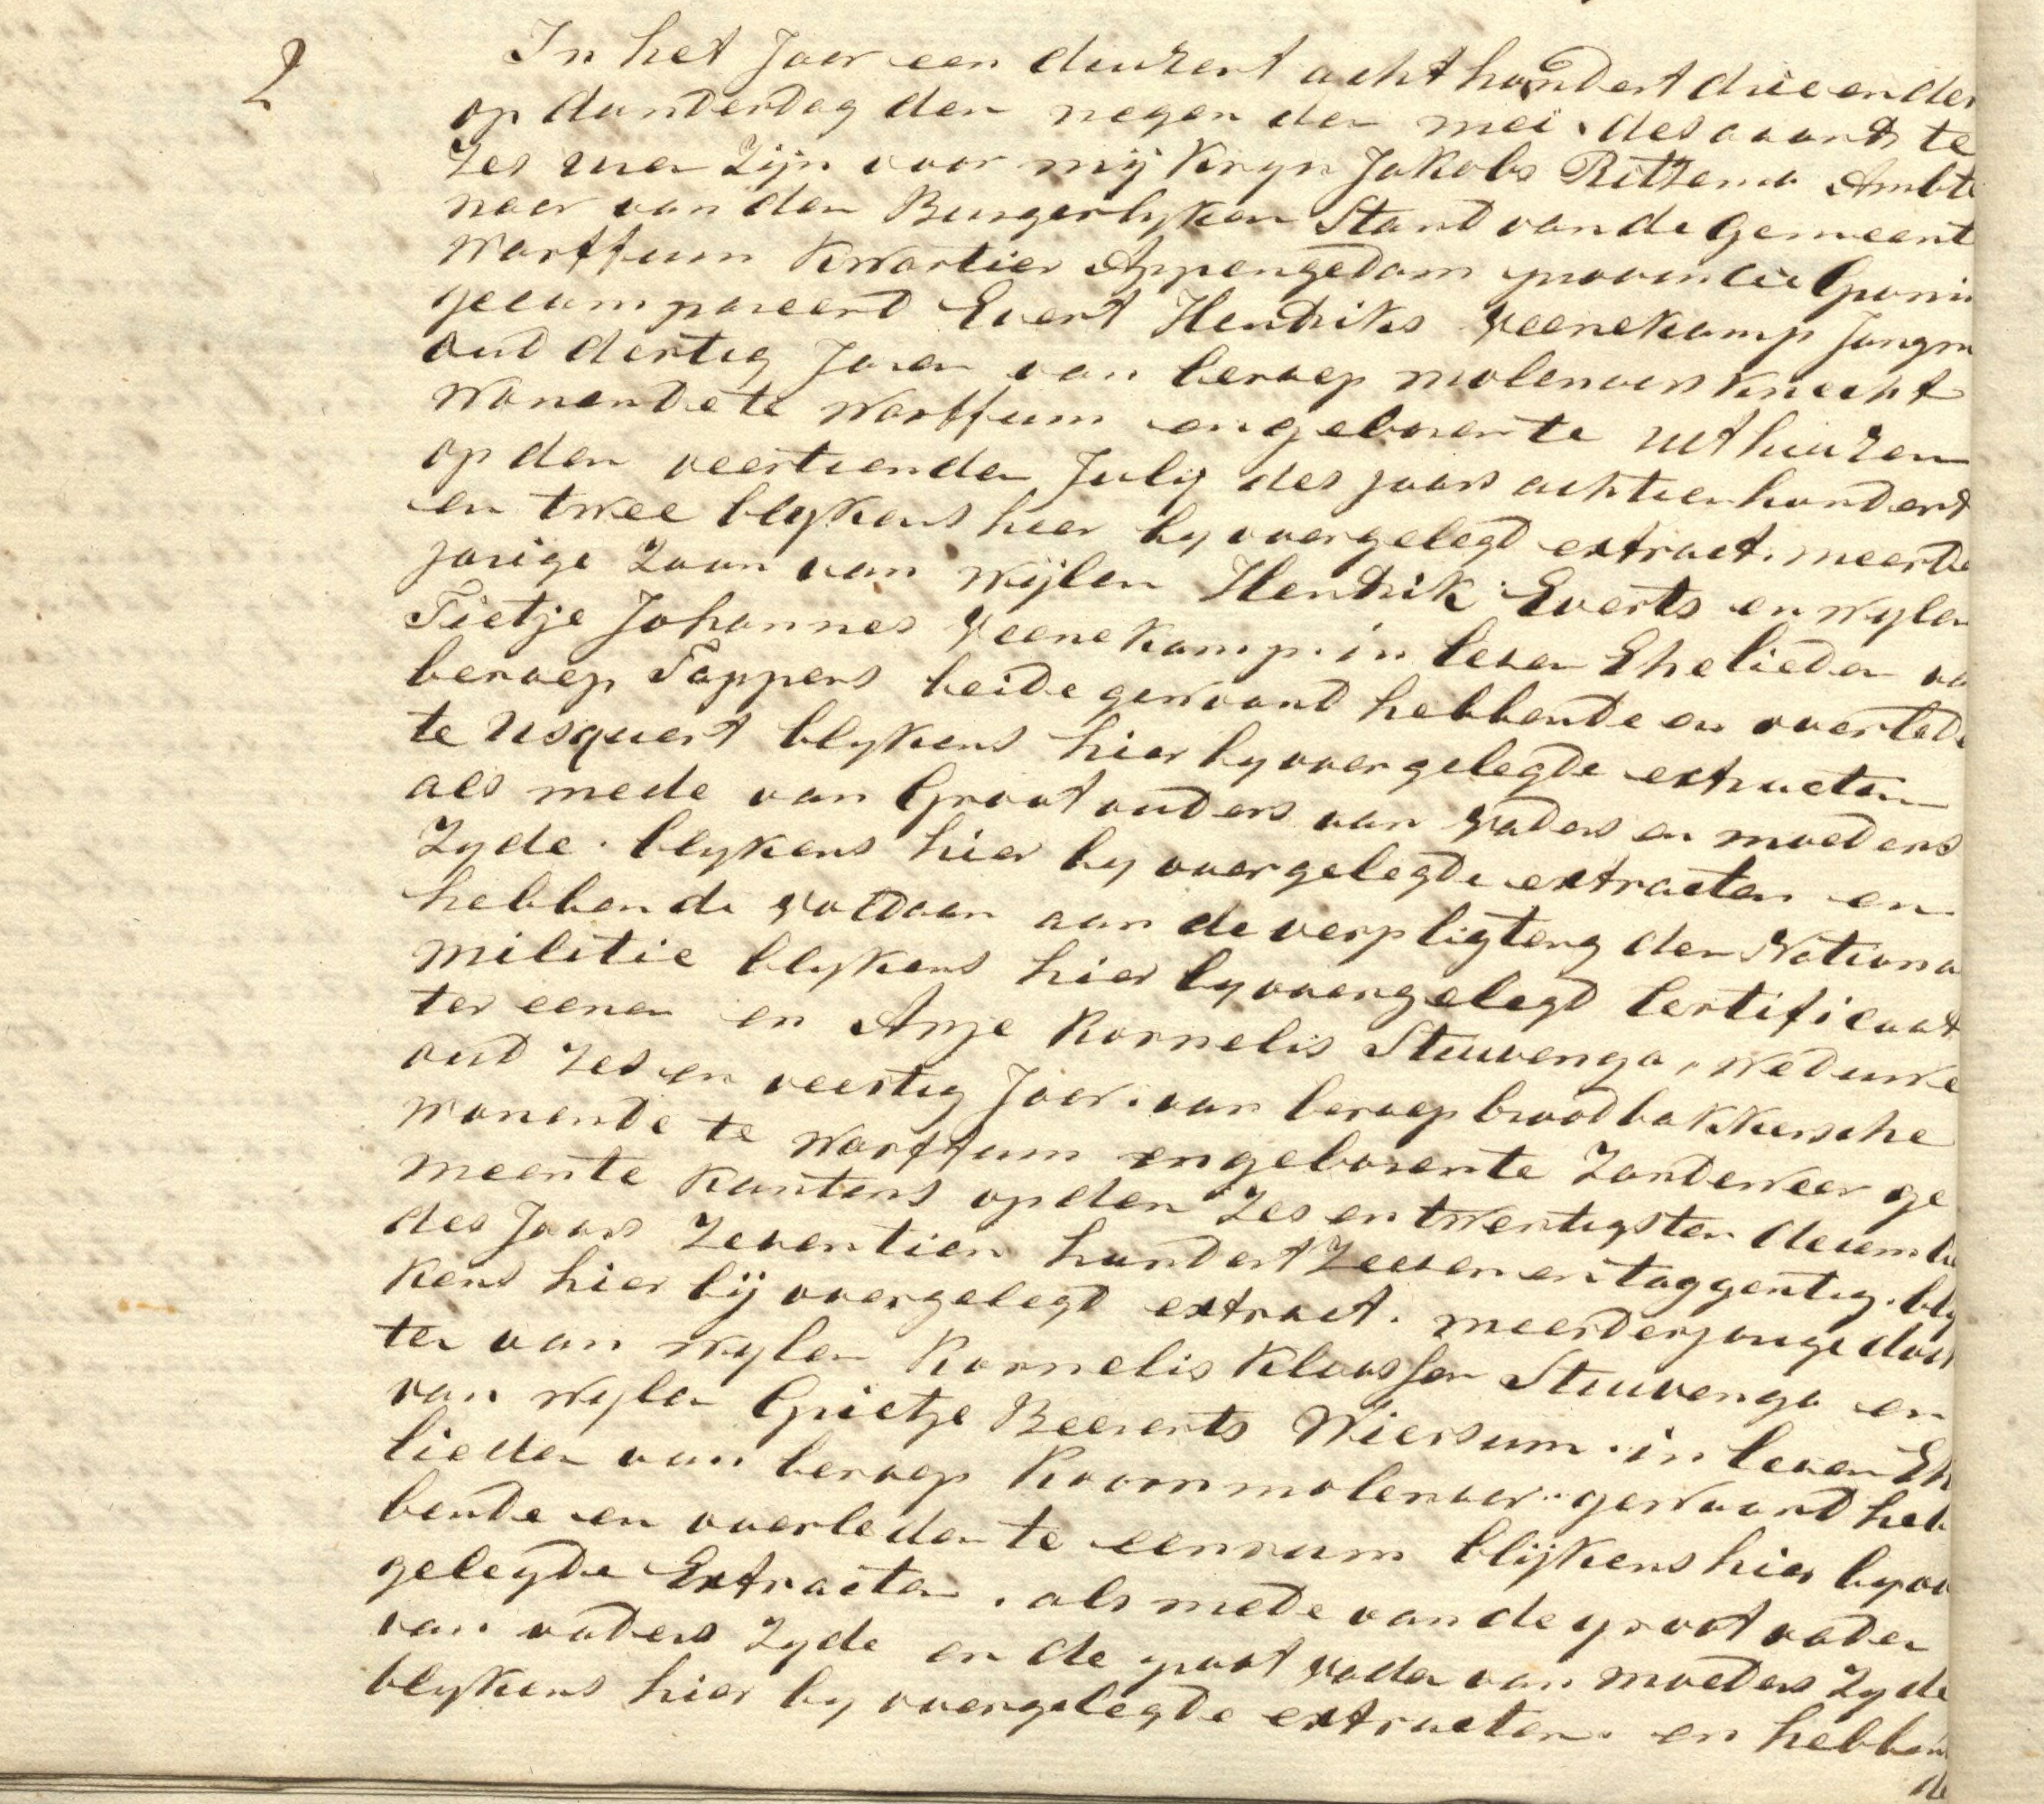 2
In het Jaar een duizent acht hondert drie en der
op donderdag den negenden mei. des avonds te
Zes uren Zijn voor mij Kryn Jakobs Ritzema Ambte
naar van den Burgerlyken Stand van de Gemeent
Warffum Kwartier Appengedam provincie Gronin
gecompareerd Evert Hendriks Veenekamp Jongm
oud dertig Jaren van beroep molenaars Knecht
Wonende te Warffum en geboren te Uithuizen
op den veertienden July des jaars achtien hondert
en twee blykens hier by overgelegd extract. meerde
jarige Zoon van Wijlen Hendrik Everts en Wylen
Tietje Johannes Veenekamp. in leven Ehelieden va
beroep Tappers beide gewoond hebbende en overlede
te Usquert blykens hier by overgelegde extracten
als mede van Groot ouders van Vaders en moeders
Zyde. blykens hier by overgelegde extracten en
hebbende Voldaan aan de verpligting der Nationa
militie blykens hier by overgelegd Certificaat
ter eenen en Anje Kornelis Stuivenga, Weduwe
oud Zes en veertig Jaar. van beroep broodbakkersche
wonende te Warffum en geboren te Zandeweer ge
meente Kantens op den Zes en twentigsten decembe
des Jaars Zeventien hondert Zeeven en taggentig. bly
kens hier bij overgelegd extract. meerderjarige doch
ter van Wylen Kornelis Klaassen Stuivenga en
van Wylen Grietje Beeverts Wiersum. in leven Eh
lieden van beroep Koornmolenaar. gewoond heb
bende en overleden te eenrum blijkens hier by ove
gelegde Extracten. als mede van de groot vader
van vaders Zyde en de groot Vader van moeders Zyde
blykens hier by overgelegde extracten. en hebben
de